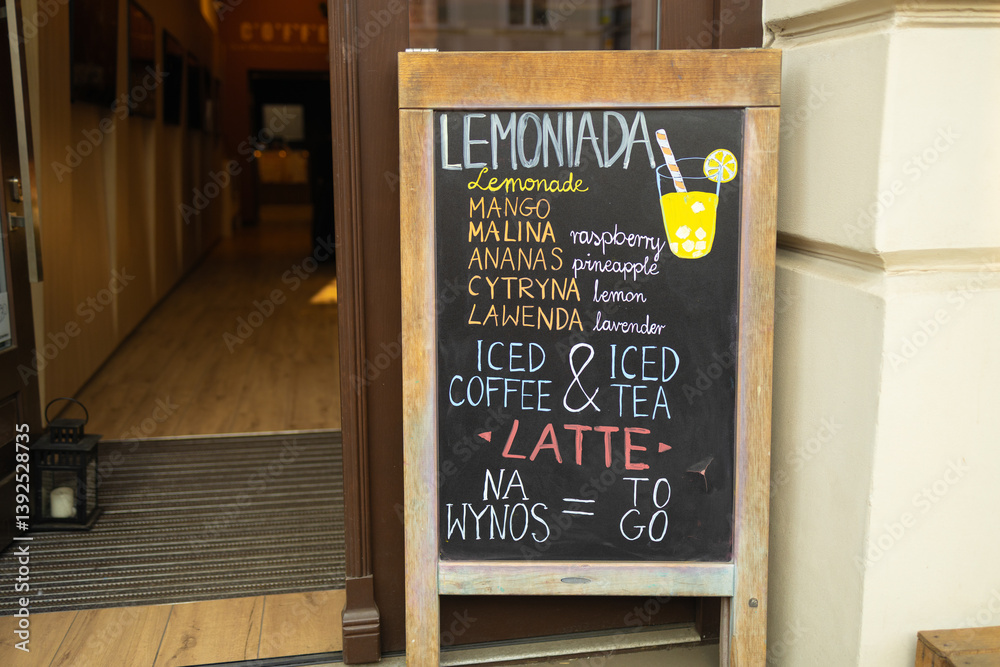 LEMONIADA
Lemonade
MANGO
MALINA raspberry
ANANAS pineapple
CYTRYNA lemon
LAWENDA lavender
ICED COFFEE & ICED TEA
LATTE
NA WYNOS = TO GO
COFFE
Adobe Stock | #1392528735